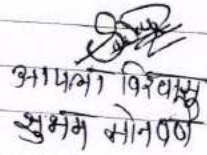 आपला विश्वासु
शुभम सोनवणे